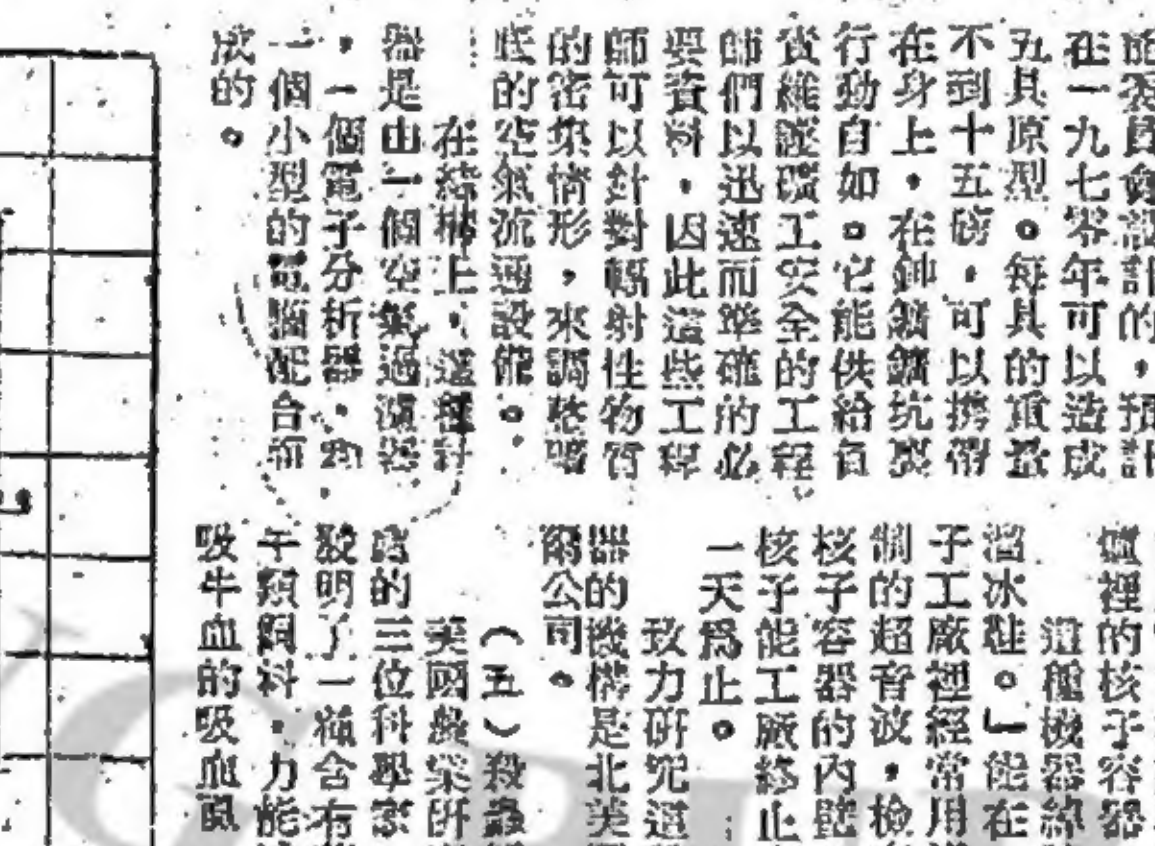 設計的，預計
在一九七零年可以造成
五具原型。每具的重量
不到十五磅，可以攜帶
在身上，在鈾礦礦坑裏
行動自如。它能供給負
責維護礦工安全的工程
師們以迅速而準確的必
要資料，因此這些工程
師可以針對輻射性物質
的密集情形，來調整
底的空氣流通設備。
在結構上，這種計
器是由一個空氣過濾器
，一個電子分析器，和
一個小型的電腦配合而
成的。
爐裡的核子容器
這種機器
溜冰鞋。」能在
子工廠裡經常用
制的超音波，檢
核子容器的內壁
核子能工廠終止
一天為止。
致力研究這
器的機構是北美
爾公司。
（五）殺蟲
英國農業研
的三位科學家
發明了一種含有
牛類飼料，力能
吸牛血的吸血